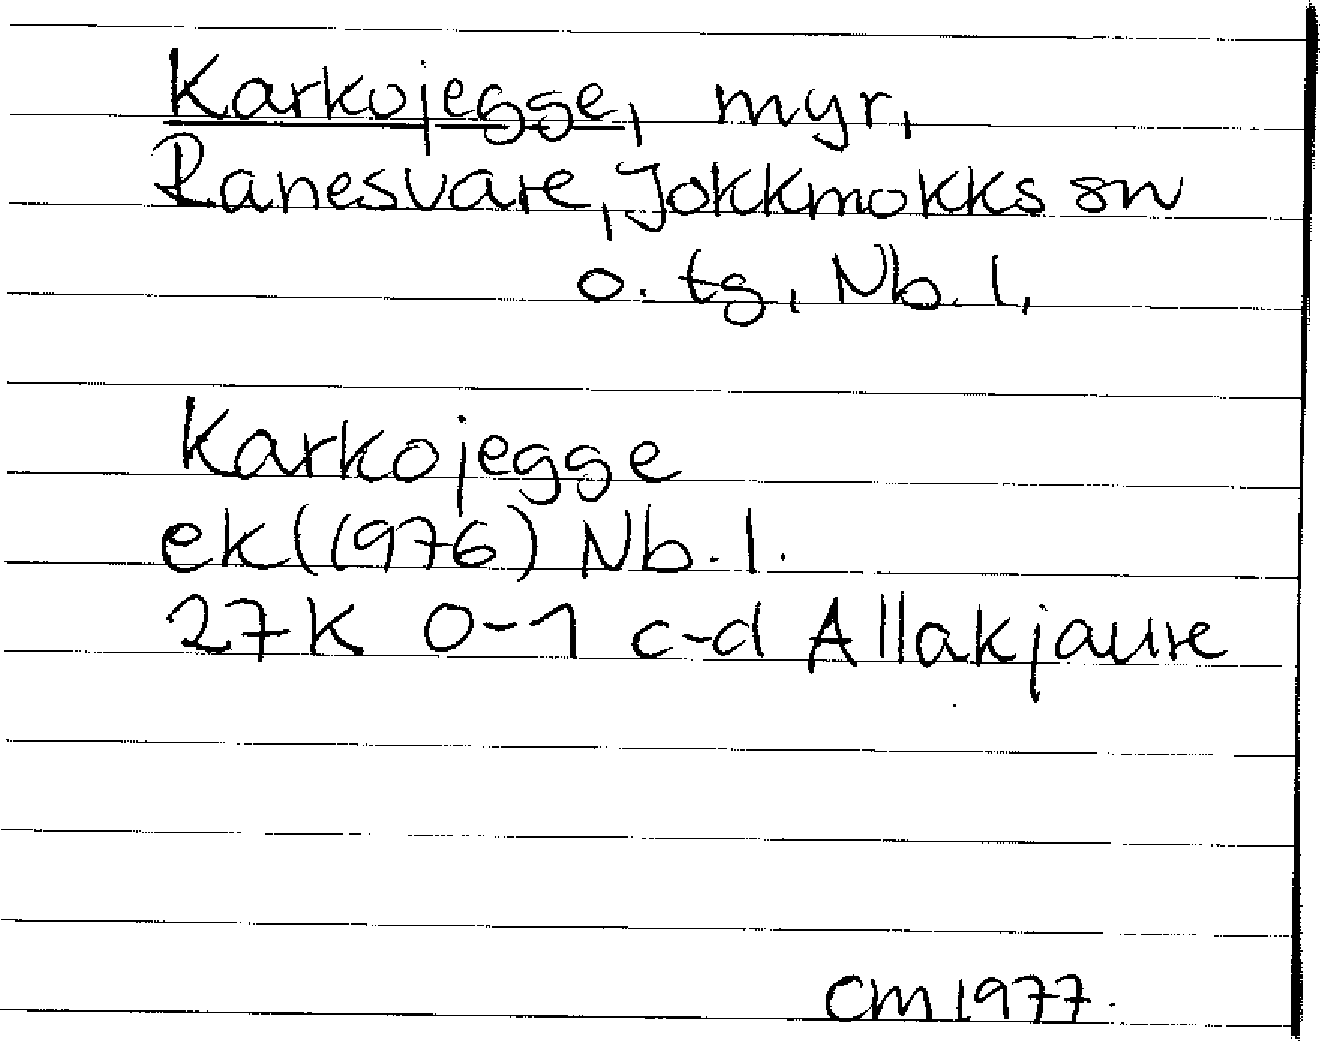 Karkojegge, myr,
Ranesvare, Jokkmokks sn
o. tg, Nb. l,
Karkojegge
ek (1976) Nb. l.
27K 0-1 c-d Allakjaure
CM 1977.